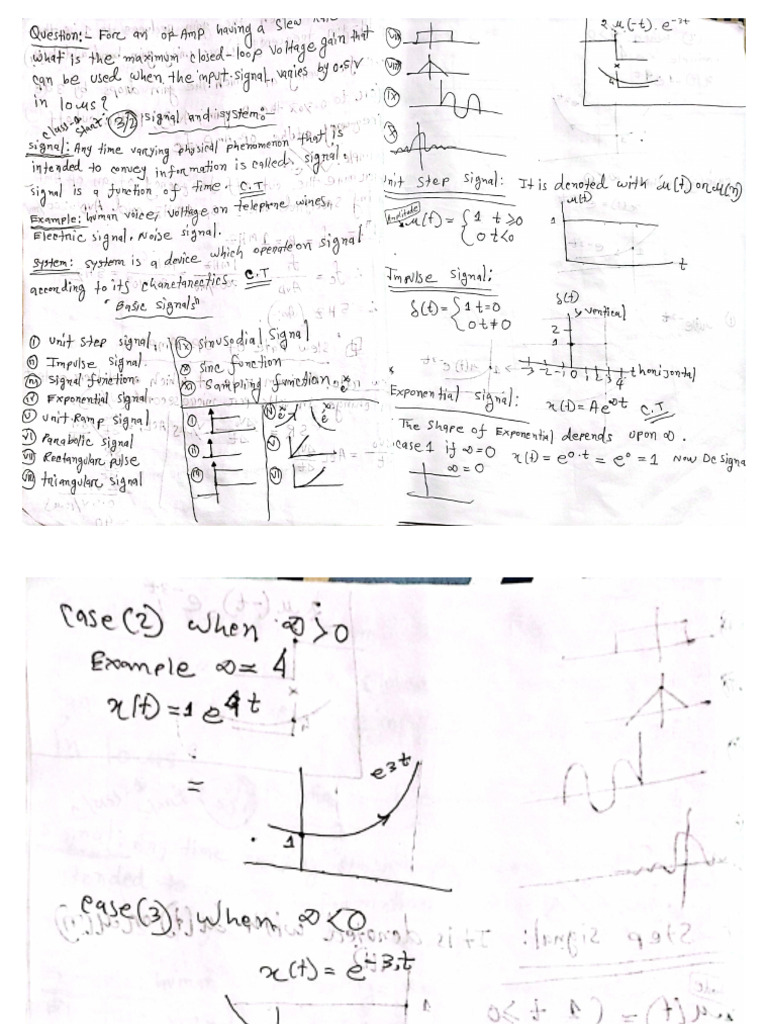 Question:- For an op Amp having a slew
what is the maximum closed-loop voltage gain that
can be used when the input signal varies by 0.5V
in 10us?
class-
start 3/2 signal and system:-
signal: Any time varying physical phenomenon that is
intended to convey information is called signal.
signal is a function of time C.T
Example: human voice, voltage on telephone wires,
Electric signal, Noise signal.
system: system is a device which operate on signal
according to its charetarectics. C.T
"Basic signals"
(i) Unit step signal.
(ii) Impulse Signal.
(iii) Signal function
(iv) Exponential signal
(v) Unit Ramp signal
(vi) Parabolic signal
(vii) Rectangular pulse
(viii) triangular signal
(ix) sinusodial signal
(x) sinc function
(xi) Sampling function
(i)
(ii)
(iii)
(iv)
(v)
(vi)
(vii)
(viii)
(ix)
(x)
2 u(-t). e^-3t
Unit step signal: It is denoted with u(t) or u(n)
u(t) = { 1 t≥0
0 t<0
u(t)
1
t
Impulse signal:
δ(t) = { 1 t=0
0 t≠0
δ(t)
y vertical
2
1
-3 -2 -1 0 1 2 3 4 t horizontal
Exponential signal: x(t) = A e^∞t C.T
The shape of Exponential depends upon ∞.
case 1 if ∞=0 x(t) = e^0.t = e^0 = 1 Now DC signa
∞ = 0
Case(2) when ∞>0
Example ∞ = 4
x(t) = 1 e^4t
=
e^3t
1
case(3) when ∞<0
x(t) = e^-3.t